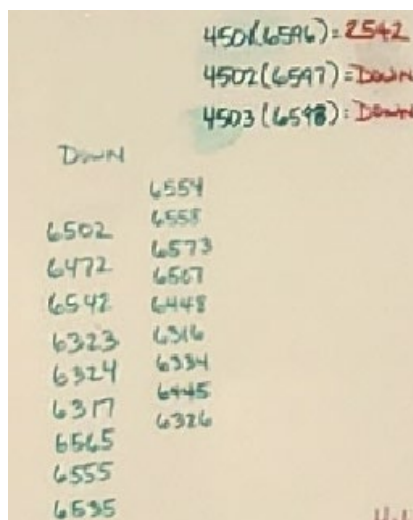 4501(6596)=2542
4502(6597)=DOWN
4503(6598)=DOWN
DOWN
6502
6472
6542
6323
6324
6317
6565
6555
6535
6554
6558
6573
6507
6448
6316
6334
6445
6326